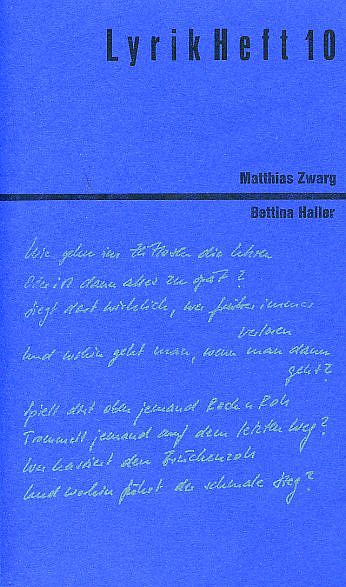 LyrikHeft 10
Matthias Zwarg
Bettina Haller
Wie gehn im Zeitlosen die Uhren
Oder ist dann alles zu spät?
Siegt dort wirklich, wer früher immer
verloren
Und wohin geht man, wenn man dann
geht?
Spielt dort oben jemand Rock n Roll
Trommelt jemand auf dem letzten Weg?
Wer kassiert den Brückenzoll
Und wohin führt der schmale Steg?